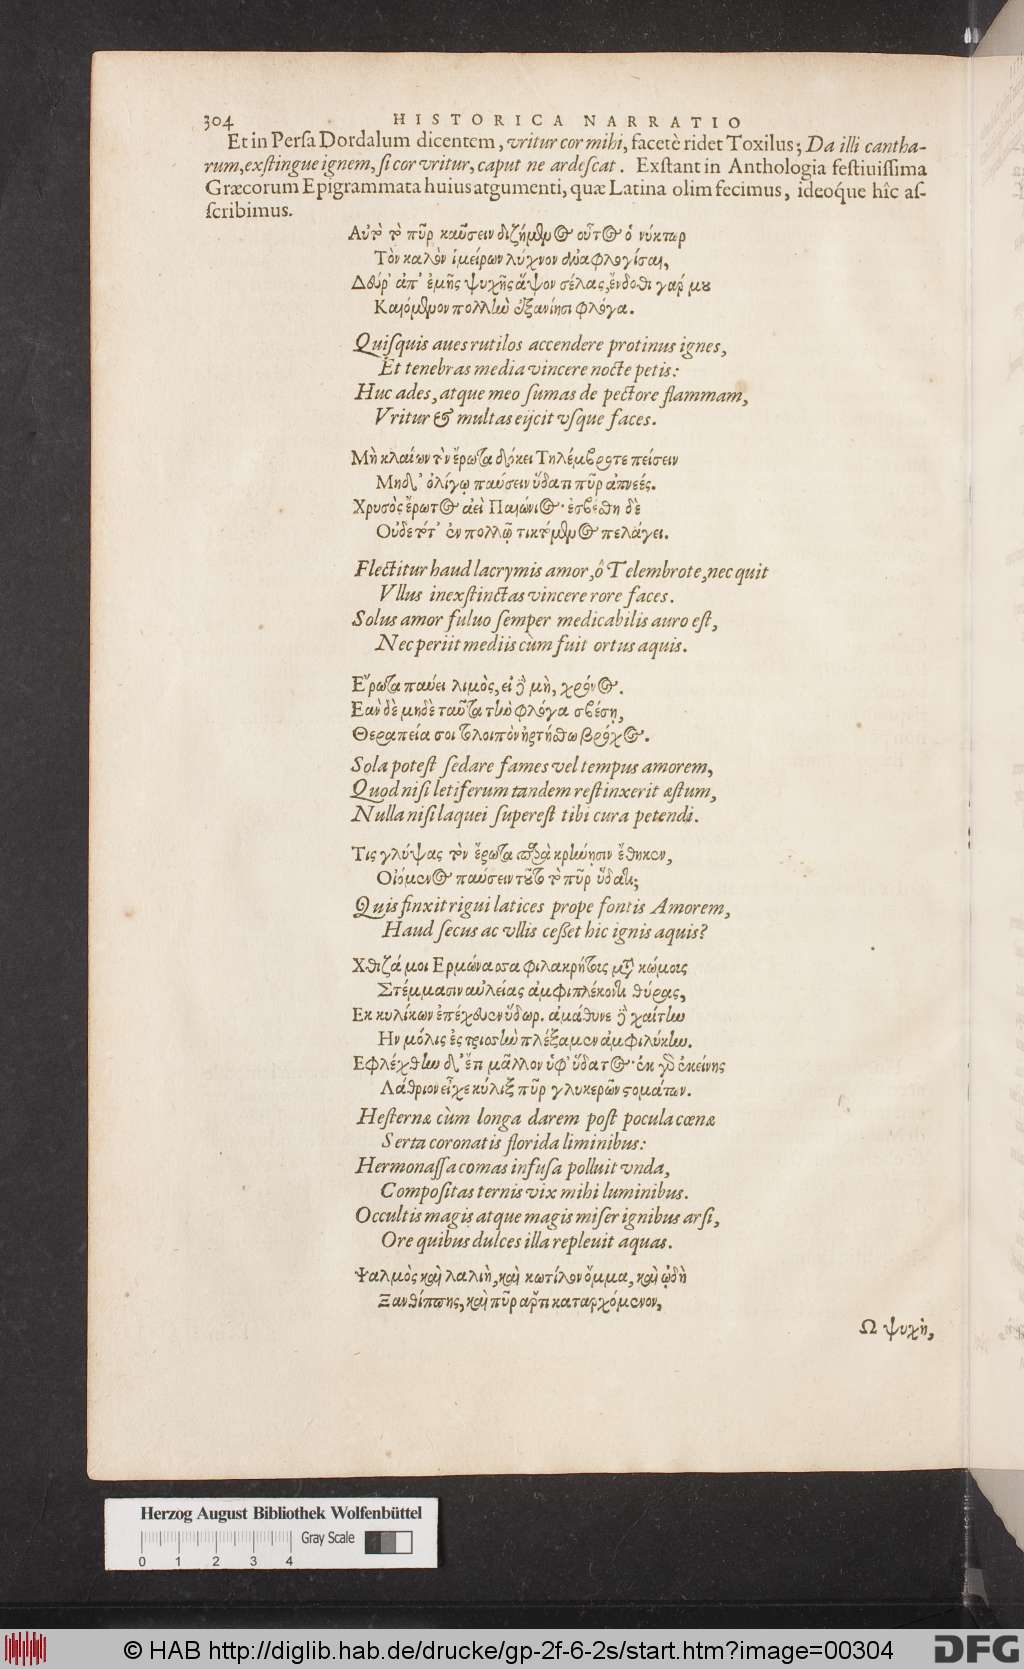 304 HISTORICA NARRATIO
Et in Persa Dordalum dicentem, vritur cor mihi, facetè ridet Toxilus; Da illi cantha-
rum, exstingue ignem, si cor vritur, caput ne ardescat. Exstant in Anthologia festiuissima
Græcorum Epigrammata huius atgumenti, quæ Latina olim fecimus, ideóque hîc as-
scribimus.
Αὐτὸ τὸ πῦρ καύσειν διζήμενος οὗτος ὁ νύκτωρ
Τὸν καλὸν ἱμείρων λύχνον ἀναφλογίσαι,
Δεύρ' ἀπ' ἐμῆς ψυχῆς ἅψον σέλας, ἔνδοθι γαρ μου
Καιόμενον πολλὴν ἐξανίησι φλόγα.
Quisquis aues rutilos accendere protinus ignes,
Et tenebras media vincere nocte petis:
Huc ades, atque meo sumas de pectore flammam,
Vritur & multas eijcit vsque faces.
Μὴ κλαίων τὸν ἔρωτα δόκει Τηλέμβροτε πείσειν
Μηδ' ὀλίγῳ παύσειν ὕδατι πῦρ ἀπνεές.
Χρυσὸς ἔρωτος ἀεὶ Παιώνιος· ἐσβέσθη δὲ
Οὐδε τότ' ἐν πολλῷ τικτόμενος πελάγει.
Flectitur haud lacrymis amor, ô Telembrote, nec quit
Vllus inexstinctas vincere rore faces.
Solus amor fuluo semper medicabilis auro est,
Nec periit mediis cùm fuit ortus aquis.
Ἔρωτα παύει λιμὸς, εἰ δὲ μὴ, χρόνος.
Εαν δὲ μηδὲ ταῦτα τὴν φλόγα σβέση,
Θεραπεία σοι τολοιπὸν ἠρτήσθω βρόχος.
Sola potest sedare fames vel tempus amorem,
Quod nisi letiferum tandem restinxerit æstum,
Nulla nisi laquei superest tibi cura petendi.
Τις γλύψας τὸν ἔρωτα παρὰ κρήνησιν ἔθηκεν,
Οἰόμενος παύσειν τοῦτο τὸ πῦρ ὕδατι;
Quis finxit rigui latices prope fontis Amorem,
Haud secus ac vllis cesset hic ignis aquis?
Χθιζά μοι Ερμώνασσα φιλακρήτοις μετὰ κώμοις
Στέμμασιν αὐλείας ἀμφιπλέκοντι θύρας,
Εκ κυλίκων ἐπέχευεν ὕδωρ. ἀμάθυνε δὲ χαίτην
Ην μόλις ἐς τρισσὴν πλέξαμεν ἀμφιλύκην.
Εφλέχθην δ' ἔτι μᾶλλον ὑφ' ὕδατος· ἐκ γὰρ ἐκείνης
Λάθριον εἶχε κύλιξ πῦρ γλυκερῶν στομάτων.
Hesternæ cùm longa darem post pocula cœnæ
Serta coronatis florida liminibus:
Hermonassa comas infusa polluit vnda,
Compositas ternis vix mihi luminibus.
Occultis magis atque magis miser ignibus arsi,
Ore quibus dulces illa repleuit aquas.
Ψαλμὸς καὶ λαλιὴ, καὶ κωτίλον ὄμμα, καὶ ᾠδὴ
Ξανθίππης, καὶ πῦρ αρτι καταρχόμενον,
Ω ψυχὴ,
Herzog August Bibliothek Wolfenbüttel
Gray Scale
0 1 2 3 4
© HAB http://diglib.hab.de/drucke/gp-2f-6-2s/start.htm?image=00304 DFG